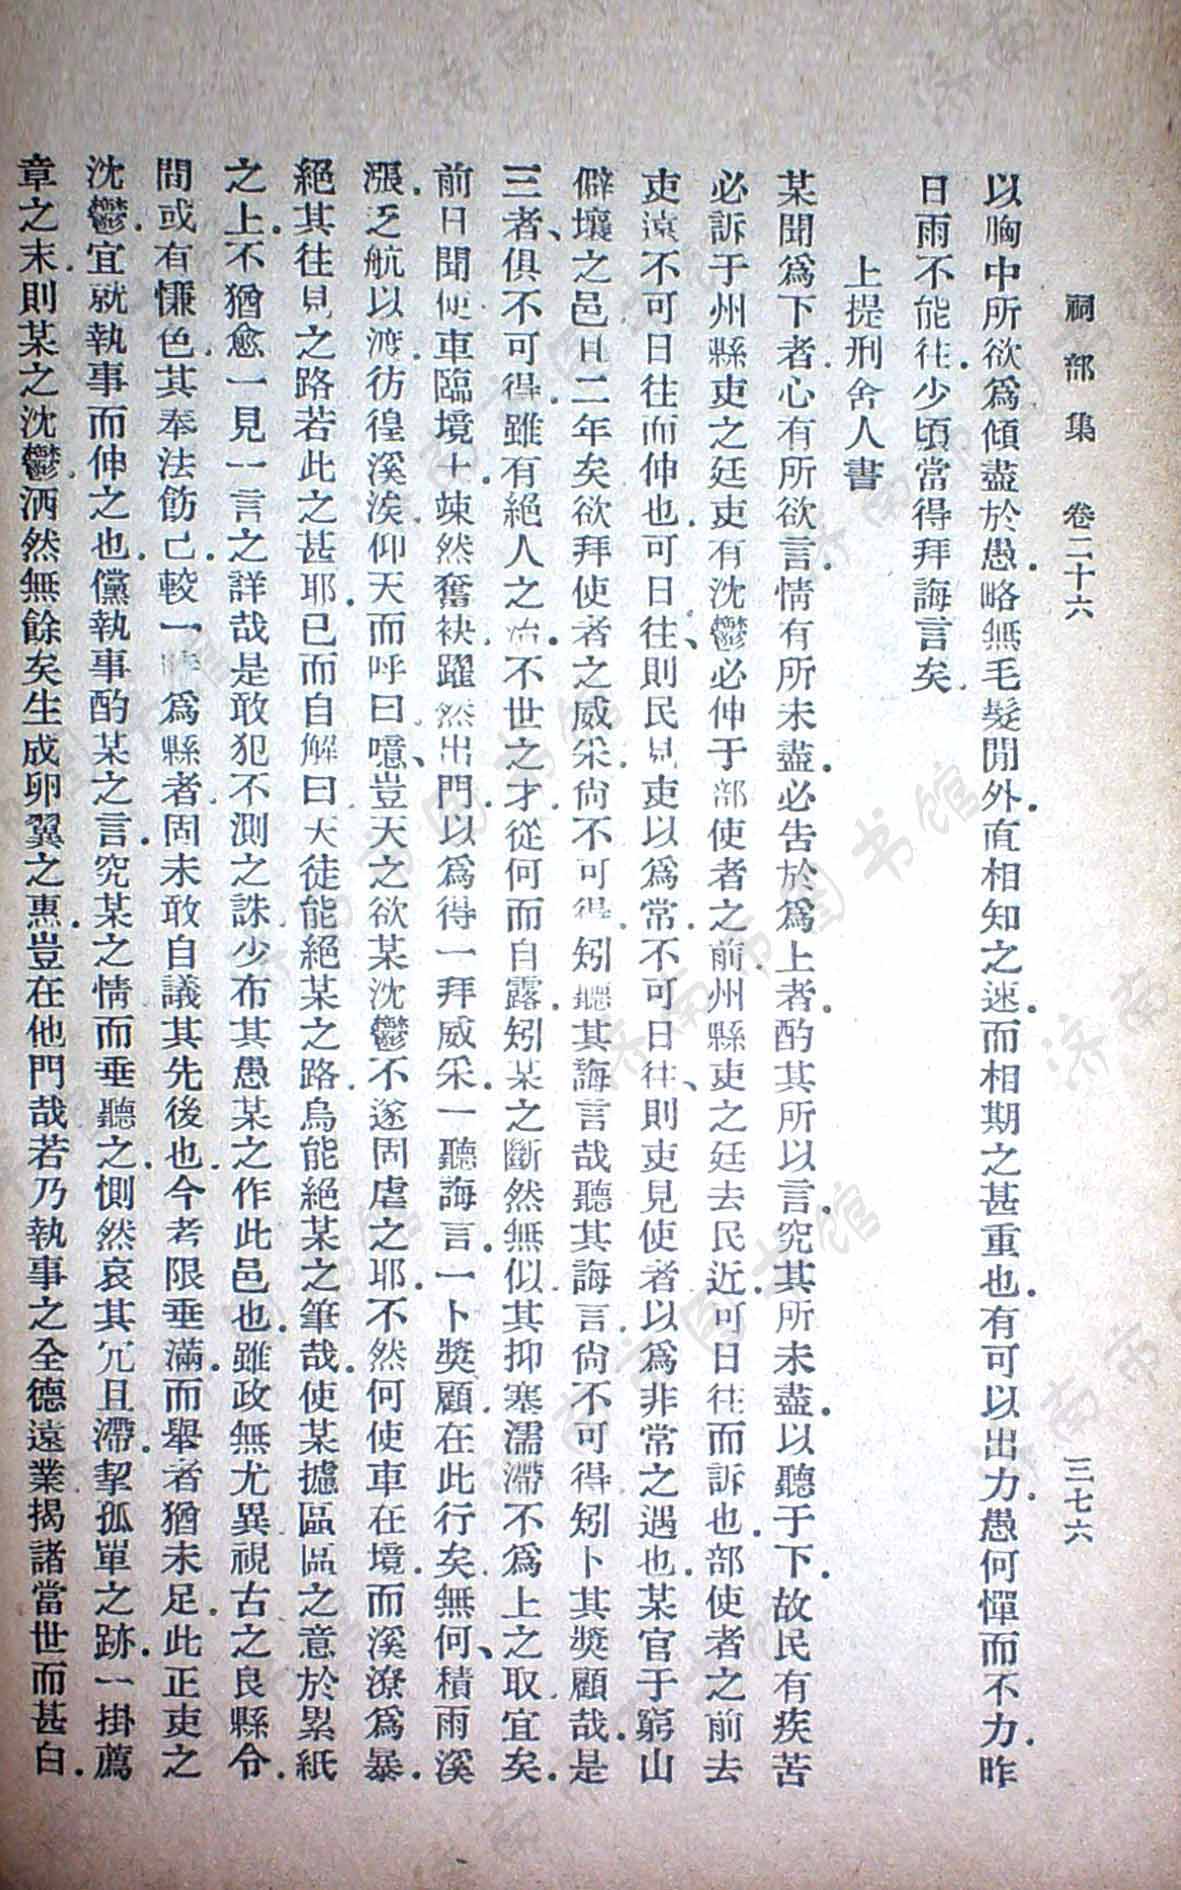 祠部集　卷二十六　三七六
以胸中所欲爲傾盡於愚.略無毛髮閒外.直相知之速.而相期之甚重也.有可以出力.愚何憚而不力.昨
日雨不能往.少頃當得拜誨言矣.
上提刑舍人書
某聞爲下者.心有所欲言.情有所未盡.必告於爲上者.酌其所以言.究其所未盡.以聽于下.故民有疾苦
必訴于州縣吏之廷.吏有沈鬱.必伸于部使者之前.州縣吏之廷去民近.可日往而訴也.部使者之前去
吏遠.不可日往而伸也.可日往、則民見吏以爲常.不可日往、則吏見使者以爲非常之遇也.某官于窮山
僻壤之邑.且二年矣.欲拜使者之威采.尙不可得.矧聽其誨言哉.聽其誨言.尙不可得.矧卜其獎顧哉.是
三者、俱不可得.雖有絕人之治.不世之才.從何而自露.矧某之斷然無似.其抑塞濡滯.不爲上之取宜矣.
前日聞使車臨境上.竦然奮袂.躍然出門.以爲得一拜威采.一聽誨言.一卜獎顧.在此行矣.無何、積雨溪
漲.乏航以渡.彷徨溪涘.仰天而呼曰.噫、豈天之欲某沈鬱不遂.固虐之耶.不然.何使車在境.而溪潦爲暴.
絕其往見之路.若此之甚耶.已而自解曰.天徒能絕某之路.烏能絕某之筆哉.使某攄區區之意於累紙
之上.不猶愈一見一言之詳哉.是敢犯不測之誅.少布其愚.某之作此邑也.雖政無尤異.視古之良縣令.
閒或有慊色.其奉法飭己.較一時爲縣者.固未敢自議其先後也.今考限垂滿.而舉者猶未足.此正吏之
沈鬱.宜就執事而伸之也.儻執事酌某之言.究某之情.而垂聽之.惻然哀其冗且滯.挈孤單之跡.一掛薦
章之末.則某之沈鬱.洒然無餘矣.生成卵翼之惠.豈在他門哉.若乃執事之全德遠業.揭諸當世而甚白.